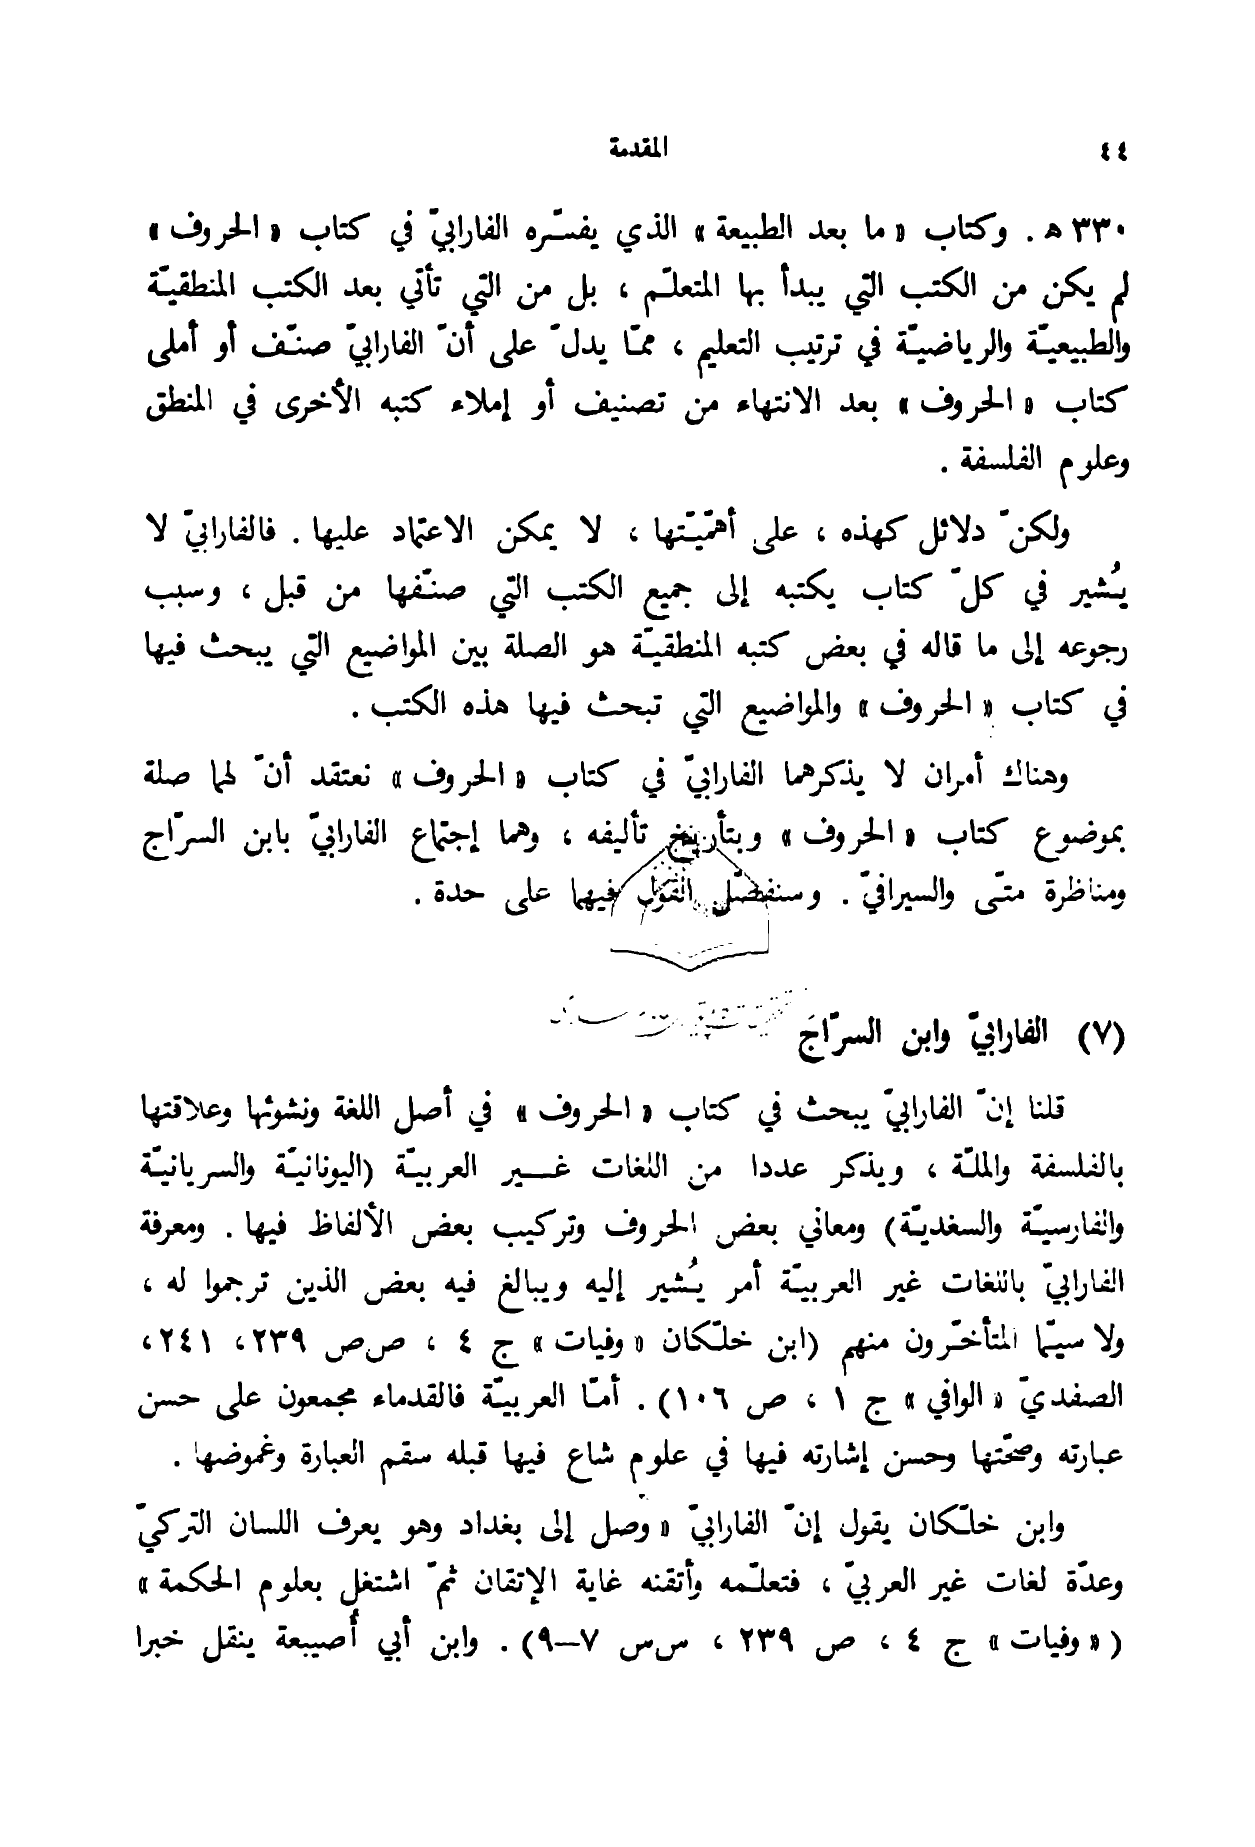 ٤٤ المقدمة
٣٣٠ ه . وكتاب « ما بعد الطبيعة » الذي يفسّره الفارابيّ في كتاب « الحروف »
لم يكن من الكتب التي يبدأ بها المتعلّم ، بل من التي تأتي بعد الكتب المنطقيّة
والطبيعيّة والرياضيّة في ترتيب التعليم ، ممّا يدلّ على أنّ الفارابيّ صنّف أو أملى
كتاب « الحروف » بعد الانتهاء من تصنيف أو إملاء كتبه الأخرى في المنطق
وعلوم الفلسفة .
ولكنّ دلائل كهذه ، على أهمّيّتها ، لا يمكن الاعتماد عليها . فالفارابيّ لا
يُشير في كلّ كتاب يكتبه إلى جميع الكتب التي صنّفها من قبل ، وسبب
رجوعه إلى ما قاله في بعض كتبه المنطقيّة هو الصلة بين المواضيع التي يبحث فيها
في كتاب « الحروف » والمواضيع التي تبحث فيها هذه الكتب .
وهناك أمران لا يذكرهما الفارابيّ في كتاب « الحروف » نعتقد أنّ لهما صلة
بموضوع كتاب « الحروف » وبتأريخ تأليفه ، وهما إجتماع الفارابيّ بابن السرّاج
ومناظرة متّى والسيرافيّ . وسنفصّل القول فيهما على حدة .
(٧) الفارابيّ وابن السرّاج
قلنا إنّ الفارابيّ يبحث في كتاب « الحروف » في أصل اللغة ونشوئها وعلاقتها
بالفلسفة والملّة ، ويذكر عددا من اللغات غير العربيّة (اليونانيّة والسريانيّة
والفارسيّة والسغديّة) ومعاني بعض الحروف وتركيب بعض الألفاظ فيها . ومعرفة
الفارابيّ باللغات غير العربيّة أمر يُشير إليه ويبالغ فيه بعض الذين ترجموا له ،
ولا سيّما المتأخّرون منهم (ابن خلّكان « وفيات » ج ٤ ، ص‌ص ٢٣٩، ٢٤١،
الصفديّ « الوافي » ج ١ ، ص ١٠٦) . أمّا العربيّة فالقدماء مجمعون على حسن
عبارته وصحّتها وحسن إشارته فيها في علوم شاع فيها قبله سقم العبارة وغموضها .
وابن خلّكان يقول إنّ الفارابيّ « وصل إلى بغداد وهو يعرف اللسان التركيّ
وعدّة لغات غير العربيّ ، فتعلّمه وأتقنه غاية الإتقان ثمّ اشتغل بعلوم الحكمة »
( « وفيات » ج ٤ ، ص ٢٣٩ ، س‌س ٧–٩) . وابن أبي أُصيبعة ينقل خبرا